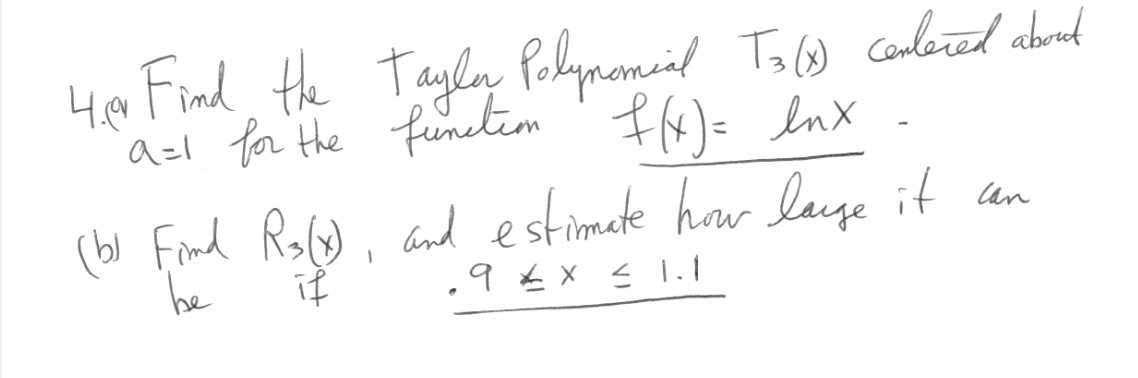 4.(a) Find the Taylor Polynomial T₃(x) centered about
a=1 for the function f(x)= lnx .
(b) Find R₃(x), and estimate how large it can
be if .9 ≤ x ≤ 1.1